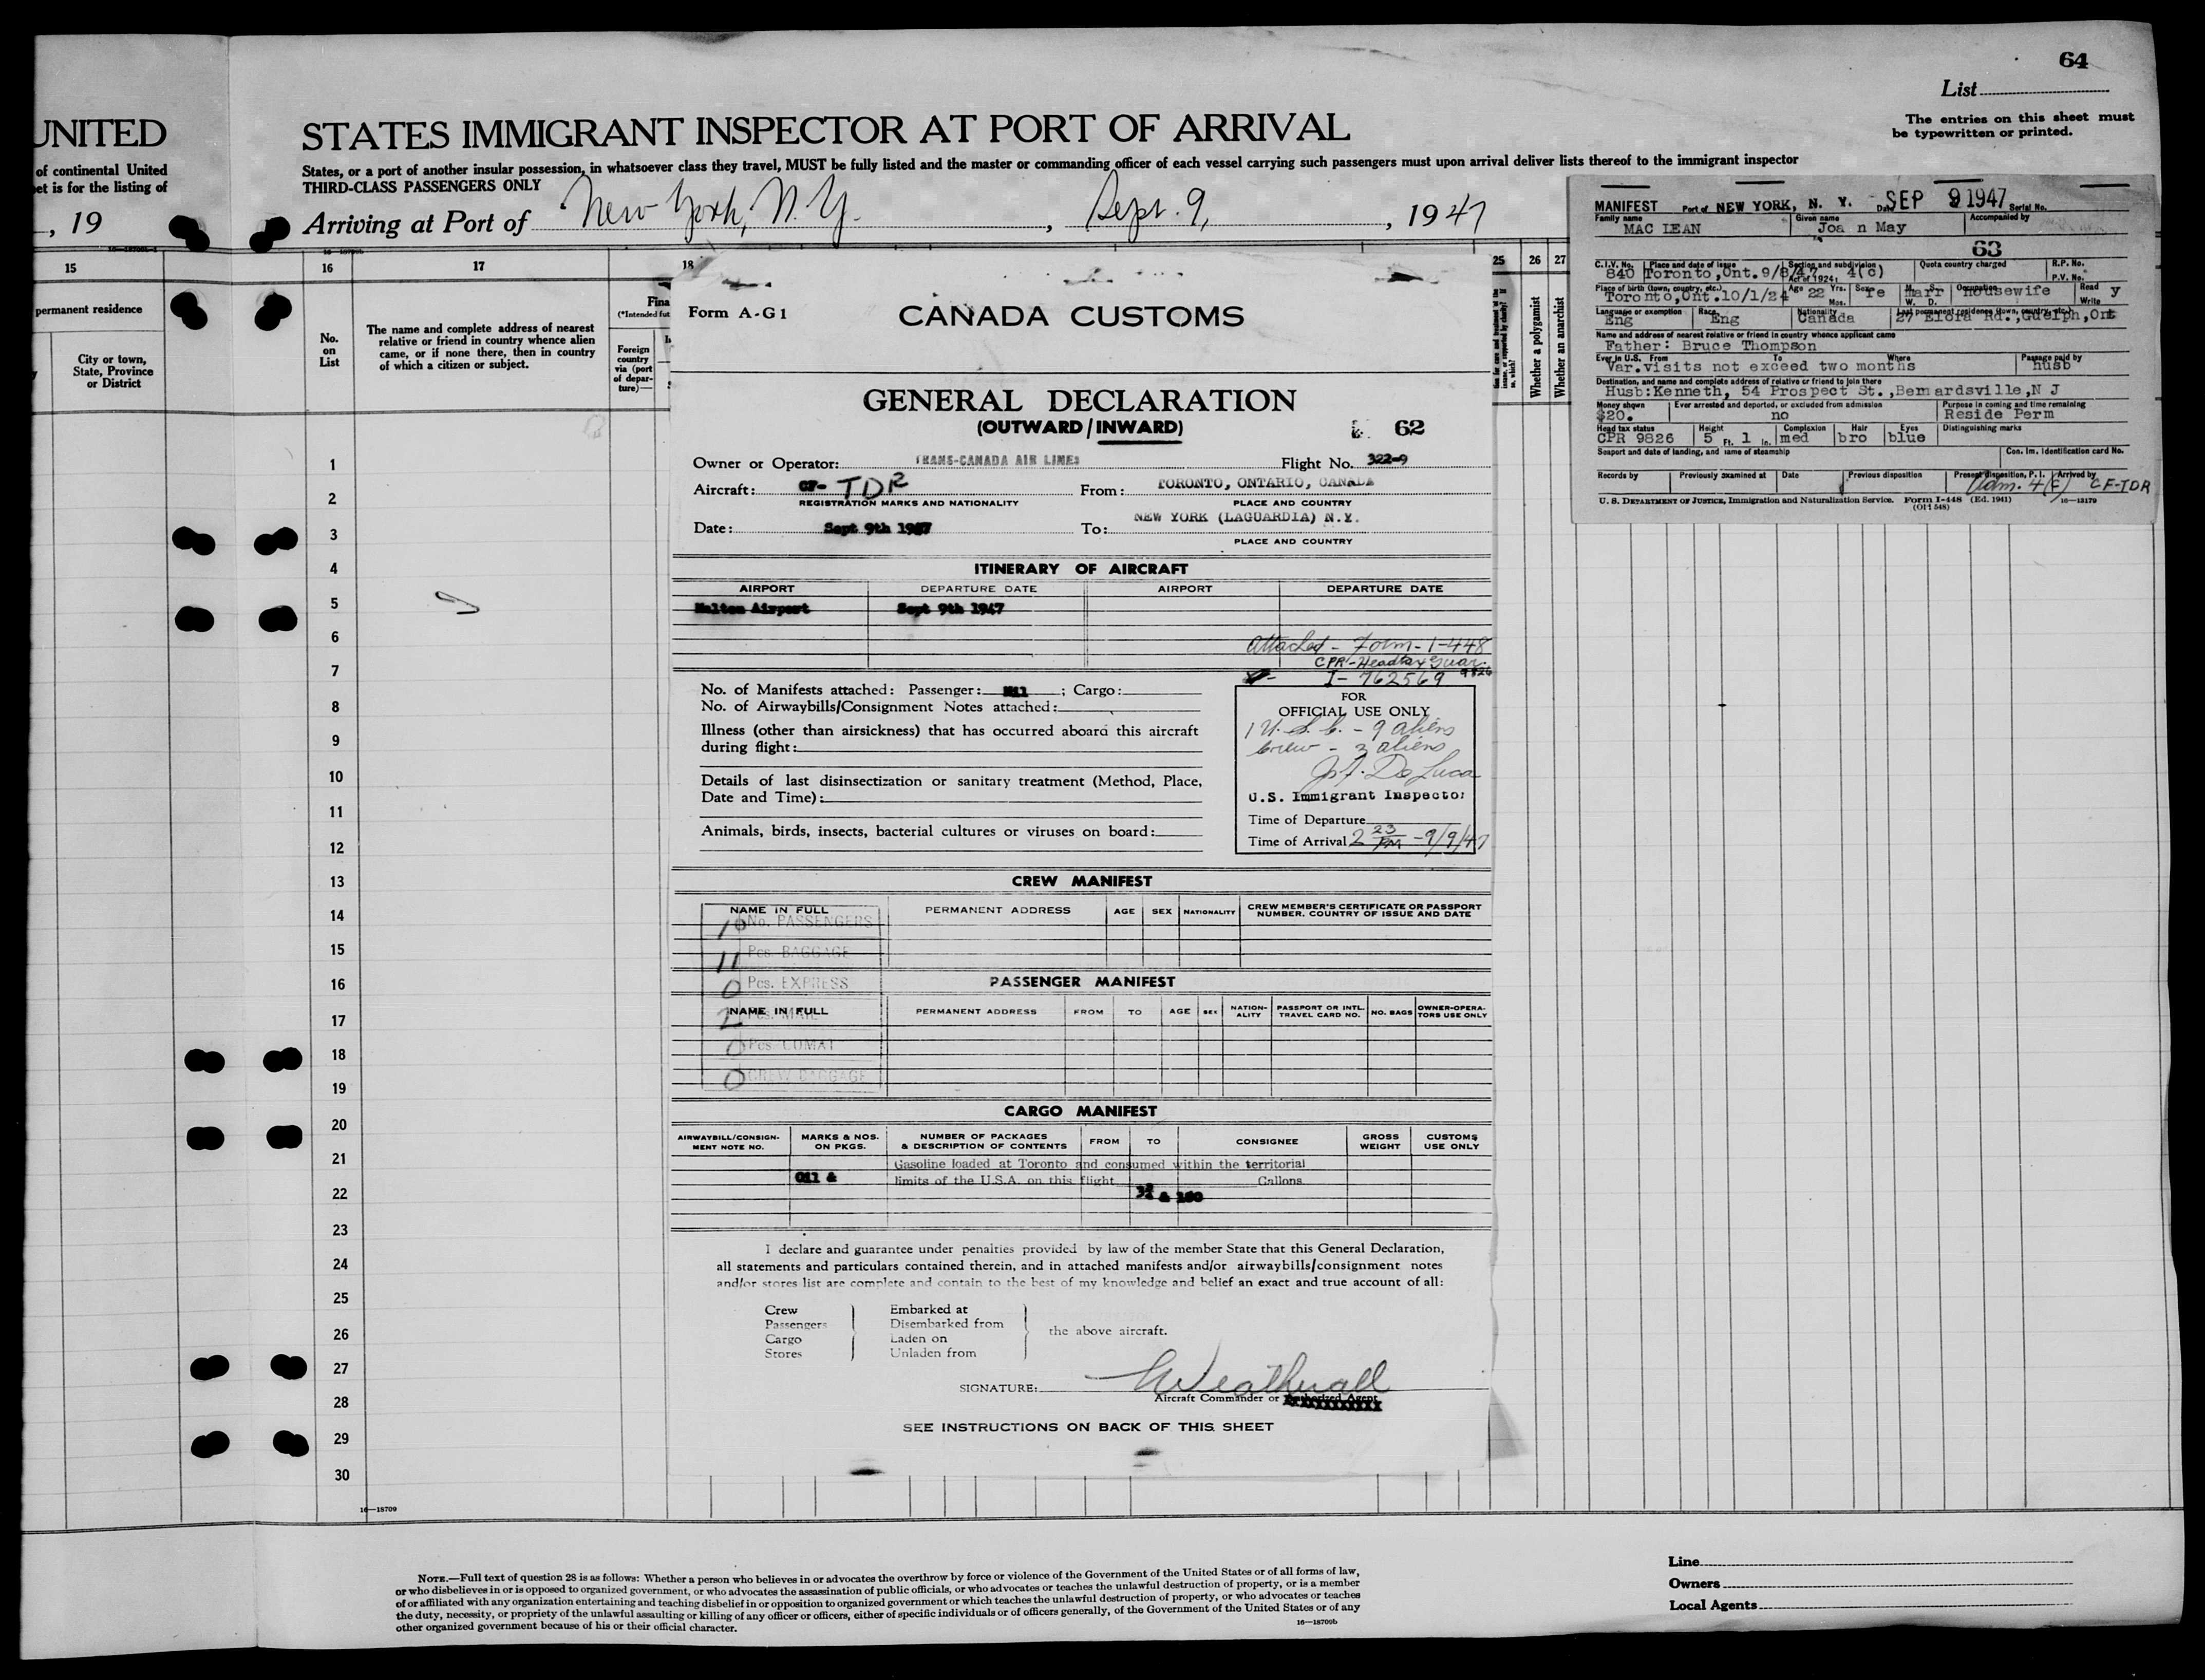 64
List
The entries on this sheet must
be typewritten or printed.
UNITED
STATES IMMIGRANT INSPECTOR AT PORT OF ARRIVAL
of continental United
et is for the listing of
States, or a port of another insular possession, in whatsoever class they travel, MUST be fully listed and the master or commanding officer of each vessel carrying such passengers must upon arrival deliver lists thereof to the immigrant inspector
THIRD-CLASS PASSENGERS ONLY
, 19
Arriving at Port of New York, N.Y. , Sept. 9, , 1947
15
16
17
18
25
26
27
permanent residence
City or town,
State, Province
or District
No.
on
List
The name and complete address of nearest
relative or friend in country whence alien
came, or if none there, then in country
of which a citizen or subject.
Fina
(*Intended fut
Foreign
country
via (port
of depar-
ture)—
Whether a polygamist
Whether an anarchist
1
2
3
4
5
6
7
8
9
10
11
12
13
14
15
16
17
18
19
20
21
22
23
24
25
26
27
28
29
30
16—18709
Form A-G1
CANADA CUSTOMS
GENERAL DECLARATION
(OUTWARD/INWARD)
62
Owner or Operator: TRANS-CANADA AIR LINES Flight No. 322-9
Aircraft: CF- TDR From: TORONTO, ONTARIO, CANADA
REGISTRATION MARKS AND NATIONALITY PLACE AND COUNTRY
Date: Sept 9th 1947 To: NEW YORK (LAGUARDIA) N.Y.
PLACE AND COUNTRY
ITINERARY OF AIRCRAFT
AIRPORT DEPARTURE DATE AIRPORT DEPARTURE DATE
Malton Airport Sept 9th 1947
Attached - Form - I-448
CPR - Headtax guar.
9826
I- 762569
No. of Manifests attached: Passenger: Nil ; Cargo:
No. of Airwaybills/Consignment Notes attached:
Illness (other than airsickness) that has occurred aboard this aircraft
during flight:
Details of last disinsectization or sanitary treatment (Method, Place,
Date and Time):
Animals, birds, insects, bacterial cultures or viruses on board:
FOR
OFFICIAL USE ONLY
1 U.S.C. - 9 aliens
Crew - 3 aliens
J.F. De Luca
U.S. Immigrant Inspector
Time of Departure
Time of Arrival 2 23 PM - 9/9/47
CREW MANIFEST
NAME IN FULL PERMANENT ADDRESS AGE SEX NATIONALITY CREW MEMBER'S CERTIFICATE OR PASSPORT
NUMBER, COUNTRY OF ISSUE AND DATE
10 No. PASSENGERS
11 Pcs. BAGGAGE
0 Pcs. EXPRESS
PASSENGER MANIFEST
NAME IN FULL PERMANENT ADDRESS FROM TO AGE SEX NATION-
ALITY PASSPORT OR INTL.
TRAVEL CARD NO. NO. BAGS OWNER-OPERA-
TORS USE ONLY
2 Pcs. MAIL
0 Pcs COMAT
0 CREW BAGGAGE
CARGO MANIFEST
AIRWAYBILL/CONSIGN-
MENT NOTE NO. MARKS & NOS.
ON PKGS. NUMBER OF PACKAGES
& DESCRIPTION OF CONTENTS FROM TO CONSIGNEE GROSS
WEIGHT CUSTOMS
USE ONLY
Gasoline loaded at Toronto and consumed within the territorial
Oil & limits of the U.S.A. on this flight Gallons
I declare and guarantee under penalties provided by law of the member State that this General Declaration,
all statements and particulars contained therein, and in attached manifests and/or airwaybills/consignment notes
and/or stores list are complete and contain to the best of my knowledge and belief an exact and true account of all:
Crew Embarked at
Passengers Disembarked from
the above aircraft.
Cargo Laden on
Stores Unladen from
SIGNATURE:
Aircraft Commander or Authorized Agent
SEE INSTRUCTIONS ON BACK OF THIS SHEET
MANIFEST Port of NEW YORK, N. Y. Date SEP 9 1947 Serial No.
Family name Given name Accompanied by
MAC LEAN Joa n May
63
C.I.V. No. Place and date of issue Section and subdivision Act of 1924: Quota country charged R.P. No.
840 Toronto,Ont. 9/8/47 4(c) P.V. No.
Place of birth (town, country, etc.) Age Yrs. Mos. Sex M. S. W. D. Occupation Read Write
Toronto,Ont.10/1/24 22 Fe Marr Housewife y
Language or exemption Race Nationality Last permanent residence (town, country, etc.)
Eng Eng Canada 27 Elora Rd.,Guelph,Ont
Name and address of nearest relative or friend in country whence applicant came
Father: Bruce Thompson
Ever in U.S. From To Where Passage paid by
Var.visits not exceed two months husb
Destination, and name and complete address of relative or friend to join there
Husb:Kenneth, 54 Prospect St.,Bernardsville,N J
Money shown Ever arrested and deported, or excluded from admission Purpose in coming and time remaining
$20. no Reside Perm
Head tax status Height Complexion Hair Eyes Distinguishing marks
CPR 9826 5 Ft. 1 In. med bro blue
Seaport and date of landing, and name of steamship Con. Im. Identification card No.
Records by Previously examined at Date Previous disposition Present disposition, P. I. Arrived by
Adm. 4(c) CF-TDR
U. S. DEPARTMENT OF JUSTICE, Immigration and Naturalization Service. Form I-448 (Ed. 1941) 16—13179
(Old 548)
NOTE.—Full text of question 28 is as follows: Whether a person who believes in or advocates the overthrow by force or violence of the Government of the United States or of all forms of law,
or who disbelieves in or is opposed to organized government, or who advocates the assassination of public officials, or who advocates or teaches the unlawful destruction of property, or is a member
of or affiliated with any organization entertaining and teaching disbelief in or opposition to organized government or which teaches the unlawful destruction of property, or who advocates or teaches
the duty, necessity, or propriety of the unlawful assaulting or killing of any officer or officers, either of specific individuals or of officers generally, of the Government of the United States or of any
other organized government because of his or their official character.
16—18709b
Line
Owners
Local Agents